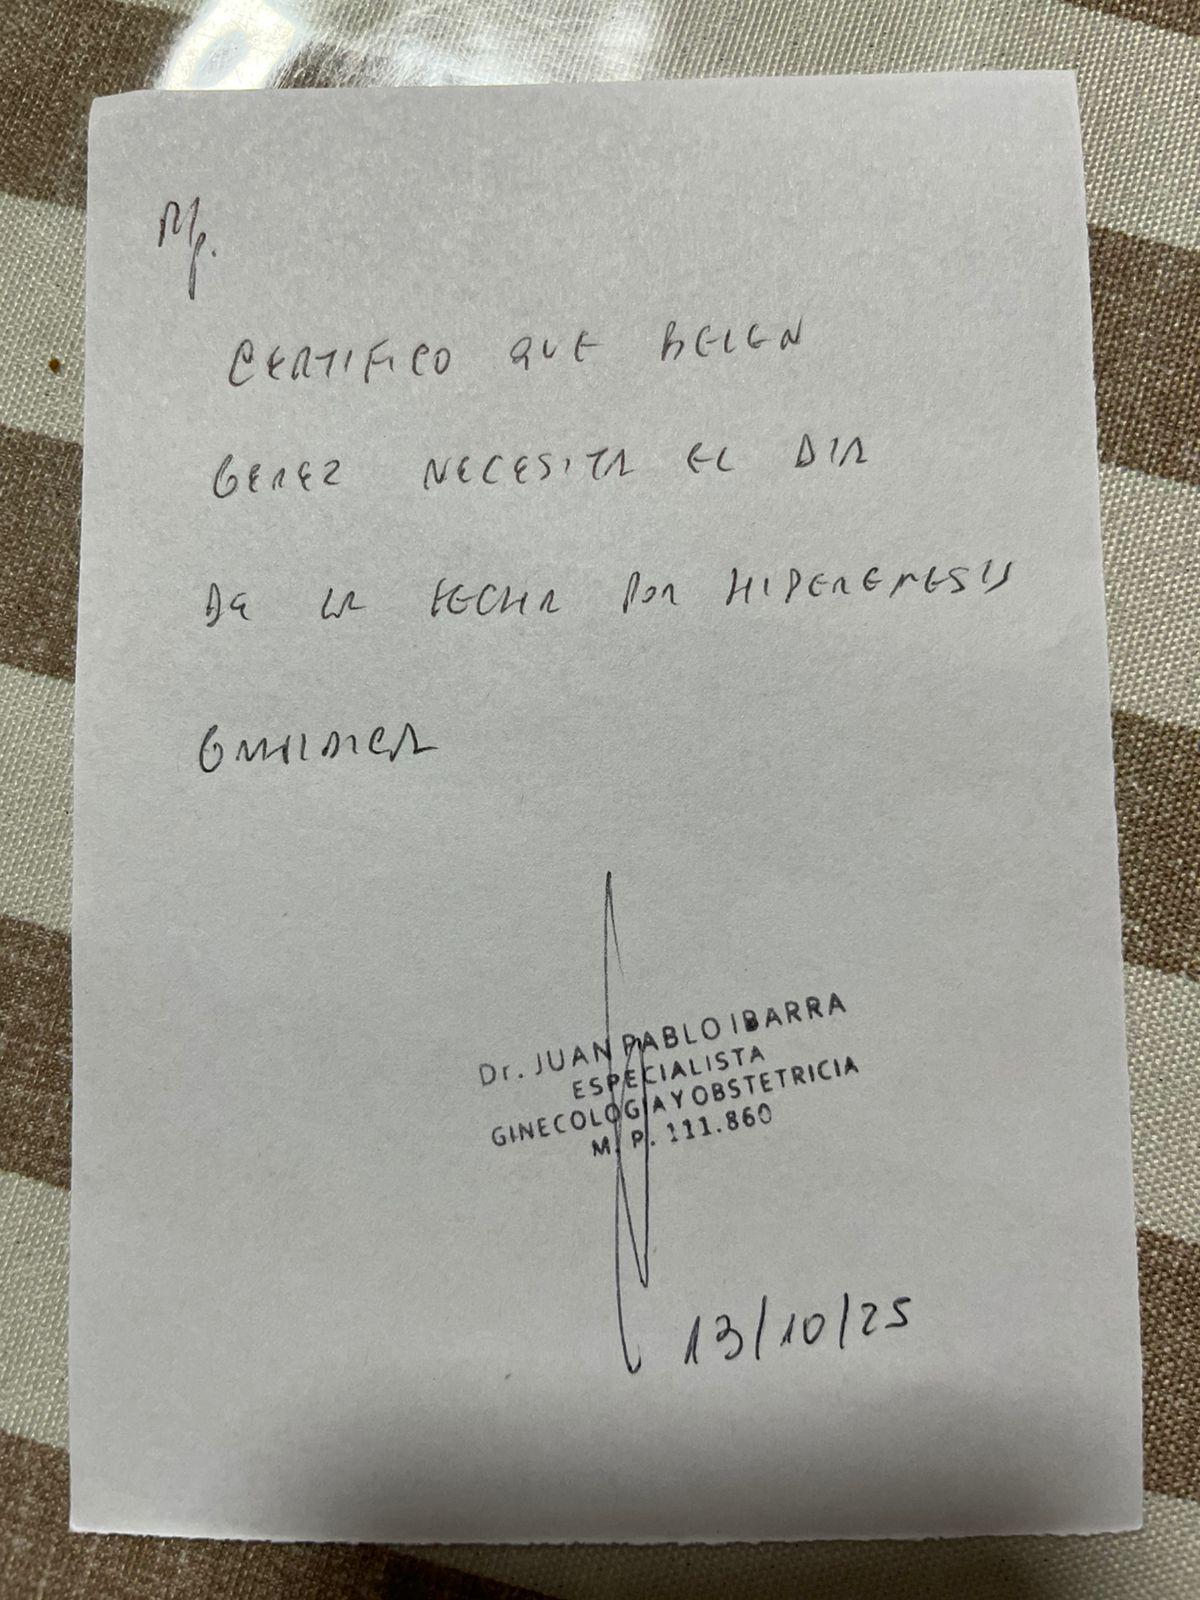 Rp.
CERTIFICO QUE BELEN
GEREZ NECESITA EL DIA
DE LA FECHA POR HIPEREMESIS
GRAVIDICA
Dr. JUAN PABLO IBARRA
ESPECIALISTA
GINECOLOGIA Y OBSTETRICIA
M. P. 111.860
13/10/25